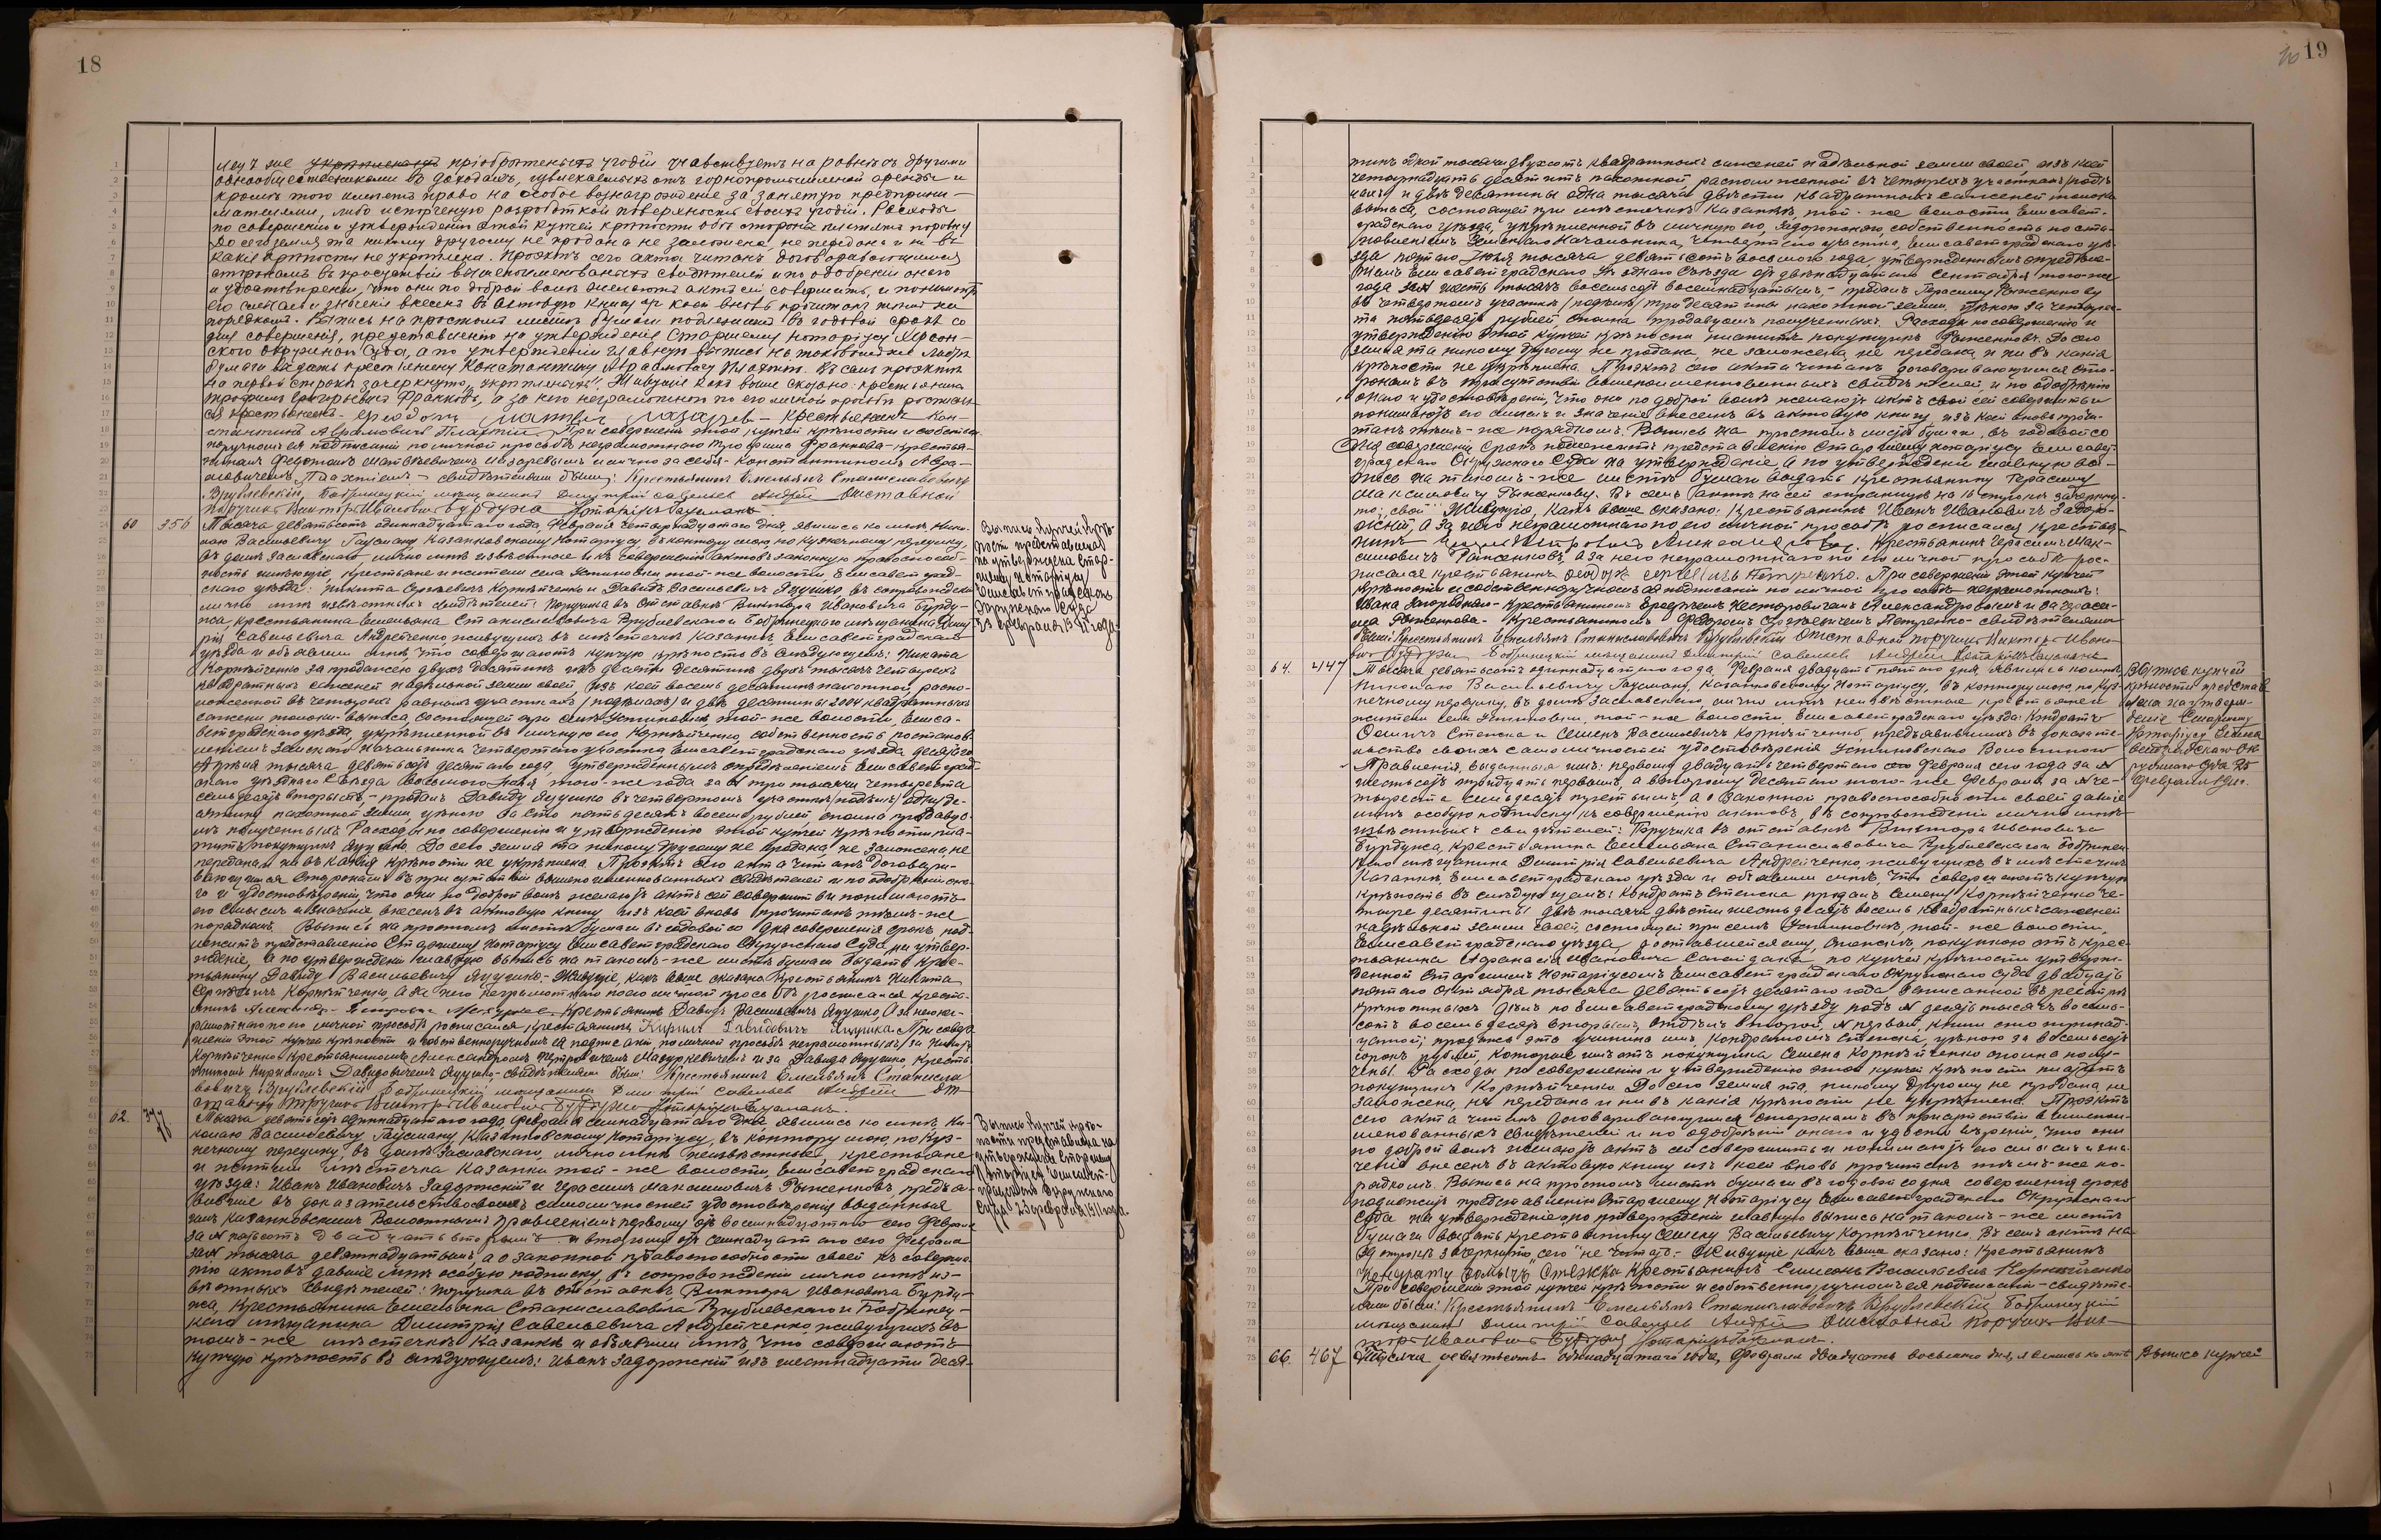 18
лецъ же укрѣпленыхъ пріобрѣтеныхъ угодій участвуетъ на равнѣ съ другими
однообщественниками въ доходахъ, извлекаемыхъ отъ горнопромышленной аренды и
кромѣ того имѣетъ право на особое вознагражденіе за занятую предприни-
мателями, либо испорченую разработкой поверхность своихъ угодій. Расходы
по совершенію и утвержденію этой купчей крѣпости обѣ стороны платятъ поровну
До сего земля та никому другому не продана не заложена, не передана и ни въ
какія крѣпости не укрѣплена. Проэктъ сего акта читанъ договаривающимся
сторонамъ въ присутствіи вышепоименованыхъ свидѣтелей и по одобреніи онаго
и удостовѣреніи, что они по доброй волѣ желаютъ актъ сей совершить, и понимаютъ
его смыслъ и значеніе внесенъ въ актовую книгу изъ коей вновь прочитанъ тѣмъ же
порядкомъ. Выпись на простомъ листѣ бумаги подлежитъ въ годовой срокъ со
дня совершенія, представленію на утвержденіе Старшему Нотаріусу Херсон-
скаго Окружнаго Суда, а по утвержденіи главную выпись на таковомъ же листѣ
бумаги выдать крестьянину Константину Абрамовичу Плахтію. Въ семъ проэктѣ
на первой строкѣ зачеркнуто „укрѣпленыхъ". Живущіе какъ выше сказано: крестьянинъ
Трофимъ Григорьевичъ Франковъ, а за него неграмотнаго по его личной просьбѣ росписал-
ся крестьянинъ - Федотъ Матвѣй Лазарев - Крестьянинъ Кон-
стантинъ Абрамовичъ Плахтій. При совершеніи этой купчей крѣпости и собствен-
норучномъ ея подписаніи по личной просьбѣ неграмотнаго Трофима Франкова - крестья-
ниномъ Федотомъ Матвѣевичемъ Лазаревымъ и лично за себя - Константиномъ Абра-
мовичемъ Плахтіемъ - свидѣтелями были: Крестьянинъ Емельянъ Станиславовичъ
Врублевскій, Бобринецкій мѣщанинъ Димитрій Савельев Андрей Отставной
Поручикъ Викторъ Иванович Бурдужа Нотаріусъ Гаусманъ.
60 356 Тысяча девятьсотъ одиннадцатаго года, Февраля четырнадцатаго дня, явились ко мнѣ Нико-
лаю Васильевичу Гаусману Казанковскому Нотаріусу въ контору мою, по Кузнечному переулку,
въ домѣ Заславскаго лично мнѣ извѣстные и къ совершенію актовъ законную правоспособ-
ность имѣющіе, крестьяне и жители села Устиновки той-же волости, Елисаветград-
скаго уѣзда: Никита Сергѣевичъ Корнѣйченко и Давидъ Васильевичъ Яцушко, въ сопровожденіи
лично мнѣ извѣстныхъ свидѣтелей: Поручика въ отставкѣ Виктора Ивановича Бурду-
жа, крестьянина Емельяна Станиславовича Врублевскаго и Бобринецкаго мѣщанина Димит-
рія Савельевича Андрейченко, живущихъ въ мѣстечкѣ Казанкѣ Елисаветградскаго
уѣзда и объявили мнѣ, что совершаютъ купчую крѣпость въ слѣдующемъ: Никита
Корнѣйченко за продажею двухъ десятинъ изъ десяти десятинъ двухъ тысячъ четырехъ
квадратныхъ саженей надѣльной земли своей, изъ коей восемь десятинъ пахотной, распо-
ложенной въ четырехъ равныхъ участкахъ (подѣлахъ) и двѣ десятины 2004 квадратныхъ
сажени толоки-выпаса, состоящей при селѣ Устиновкѣ, той-же волости, Елиса-
ветградскаго уѣзда, укрѣпленной въ личную его, Корнѣйченко, собственность постанов-
леніемъ Земскаго Начальника четвертаго участка Елисаветградскаго уѣзда десятаго
Апрѣля тысяча девятьсотъ десятаго года, утвержденнымъ опредѣленіемъ Елисаветград-
скаго уѣзднаго Съѣзда восьмого Мая того-же года за № три тысячи четыреста
семьдесятъ вторымъ, - продалъ Давиду Яцушко въ четвертомъ участкѣ (подѣлѣ) одну де-
сятину пахотной земли, цѣною за сто пятьдесятъ восемь рублей, сполна продавцо-
мъ полученныхъ. Расходы по совершенію и утвержденію этой купчей крѣпости пла-
титъ покупщикъ Яцушко. До сего земля та никому другому не продана, не заложена, не
передана и ни въ какія крѣпости не укрѣплена. Проэктъ сего акта читанъ договари-
вающимся сторонамъ въ присутствіи вышепоименованныхъ свидѣтелей и по одобреніи она-
го и удостовѣреніи, что они по доброй волѣ желаютъ актъ сей совершить и понимаютъ
его смыслъ и значеніе, внесенъ въ актовую книгу изъ коей вновь прочитанъ тѣмъ-же
порядкомъ. Выпись на простомъ листѣ бумаги въ годовой со дня совершенія срокъ под-
лежитъ представленію Старшему Нотаріусу Елисаветградскаго Окружнаго Суда на утвер-
жденіе, а по утвержденіи главную выпись на такомъ-же листѣ бумаги выдать крес-
тьянину Давиду Васильевичу Яцушко. Живущіе, какъ выше сказано: Крестьянинъ Никита
Сергѣевичъ Корнѣйченко, а за него неграмотнаго по его личной просьбѣ росписался кресть-
янинъ Александръ Петровичъ Мазуркев Крестьянинъ Давидъ Васильевичъ Яцушко, а за него нег-
рамотнаго по его личной просьбѣ росписался крестьянинъ Кирилъ Давидовичъ Яцушка. При совер-
шеніи этой купчей крѣпости и собственноручномъ ея подписаніи, по личной просьбѣ неграмотныхъ: за Никиту
Корнѣйченко крестьяниномъ Александромъ Петровичемъ Мазуркевичемъ и за Давида Яцушко, кресть-
яниномъ Кириломъ Давидовичемъ Яцушко, - свидѣтелями были: Крестьянинъ Емельянъ Станисла
вовичъ Врублевскій Бобринецкій мѣщанинъ Димитрій Савельев Андрей От
ставной Поручикъ Викторъ Иванович Бурдужа Нотаріусъ Гаусманъ.
Выпись купчей крѣ-
пости представлена
на утвержденіе Стар-
шему Нотаріусу
Елисаветградскаго
Окружнаго Суда
23 февраля 1911 года.
62. 377 Тысяча девятьсотъ одиннадцатаго года, Февраля семнадцатаго дня, явились ко мнѣ Ни-
колаю Васильевичу Гаусману, Казанковскому Нотаріусу, въ контору мою, по Куз-
нечному переулку, въ домѣ Заславскаго, лично мнѣ неизвѣстные, крестьяне
и жители мѣстечка Казанки той-же волости, Елисаветградскаго
уѣзда: Иванъ Ивановичъ Задорожній и Герасимъ Максимовичъ Рыженковъ, предъя-
вившіе въ доказательство своей самоличностей удостовѣренія выданныя
имъ Казанковскимъ Волостнымъ Правленіемъ первому отъ восемнадцатаго сего Февраля
за № пятьсотъ двадцать вторымъ и второму отъ семнадцатаго сего Февраля
за № тысяча девятнадцатымъ, а о законной правоспособности своей къ соверше-
нію актовъ давшіе мнѣ особую подписку, въ сопровожденіи лично мнѣ из-
вѣстныхъ свидѣтелей: Поручика въ отставкѣ Виктора Ивановича Бурду-
жа, Крестьянина Емельяна Станиславовича Врублевскаго и Бобринец-
каго мѣщанина Димитрія Савельевича Андрейченко, живущихъ въ
томъ-же мѣстечкѣ Казанкѣ и объявили мнѣ, что совершаютъ
купчую крѣпость въ слѣдующемъ: Иванъ Задорожній изъ шестнадцати деся-
Выпись купчей крѣ-
пости представлена на
утвержденіе Старшему
Нотаріусу Елисавет-
градскаго Окружнаго
Суда 23 февраля 1911 года.
19
тинъ одной тысячи двухсотъ квадратныхъ саженей надѣльной земли своей, изъ коей
четырнадцать десятинъ пахотной расположенной въ четырехъ участкахъ (подѣ-
лахъ) и двѣ десятины одна тысяча двѣсти квадратныхъ саженей толоки
выпаса, состоящей при мѣстечкѣ Казанкѣ, той-же волости, Елисавет-
градскаго уѣзда, укрѣпленной въ личную его, Задорожняго, собственность поста-
новленіемъ Земскаго Начальника, четвертаго участка, Елисаветградскаго уѣ-
зда пятаго Іюля тысяча девятьсотъ восьмого года, утвержденнымъ опредѣле-
ніемъ Елисаветградскаго Уѣзднаго Съѣзда отъ двѣнадцатаго Сентября того-же
года за № шесть тысячъ восемьсотъ восемнадцатымъ, - продалъ Герасиму Рыженкову
въ четвертомъ участкѣ (подѣлѣ) три десятины пахотной земли, цѣною за четырес-
та пятьдесятъ рублей сполна продавцомъ полученныхъ. Расходы по совершенію и
утвержденію этой купчей крѣпости платитъ покупщикъ Рыженковъ. До сего
земля та никому другому не продана, не заложена, не передана и ни въ какія
крѣпости не укрѣплена. Проэктъ сего акта читанъ договаривающимся сто-
ронамъ въ присутствіи вышепоименованныхъ свидѣтелей, и по одобреніи
онаго и удостовѣреніи, что они по доброй волѣ желаютъ актъ свой сей совершить и
понимаютъ его смыслъ и значеніе внесенъ въ актовую книгу, изъ коей вновь прочи-
танъ тѣмъ-же порядкомъ. Выпись на простомъ листѣ бумаги, въ годовой со
дня совершенія срокъ подлежитъ представленію Старшему Нотаріусу Елисавет-
градскаго Окружнаго Суда на утвержденіе, а по утвержденіи главную вы-
пись на такомъ-же листѣ бумаги выдать крестьянину Герасиму
Максимовичу Рыженкову. Въ семъ актѣ на сей страницѣ на 16 строкѣ зачеркну-
то: „свой" Живущіе, какъ выше сказано: Крестьянинъ Иванъ Ивановичъ Задоро-
жній, а за него неграмотнаго по его личной просьбѣ росписался крестья-
нинъ Александров. Крестьянинъ Герасимъ Мак-
симовичъ Рыженковъ, а за него неграмотнаго по его личной просьбѣ рос-
писался крестьянинъ Федоръ Сергѣевичъ Петренко. При совершеніи этой купчей
крѣпости и собственноручномъ ея подписаніи по личной просьбѣ неграмотныхъ:
Ивана Задорожняго - крестьяниномъ Нестеровичемъ Александровымъ и за Гераси-
ма Рыженкова - Крестьяниномъ Федоромъ Сергѣевичемъ Петренко - свидѣтелями
были: Крестьянинъ Емельянъ Станиславовичъ Врублевскій Отставной поручикъ Викторъ Ивано-
вич Бурдужа Бобринецкій мѣщанинъ Димитрій Савельев Андрей Нотаріусъ Гаусманъ
64. 447 Тысяча девятьсотъ одиннадцатаго года, Февраля двадцать пятаго дня, явились ко мнѣ
Николаю Васильевичу Гаусману, Казанковскому Нотаріусу, въ контору мою, по Куз-
нечному переулку, въ домѣ Заславскаго, лично мнѣ неизвѣстные крестьяне
жители села Устиновки, той-же волости, Елисаветградскаго уѣзда: Кондратъ
Фомичъ Стежка и Семенъ Васильевичъ Корнѣйченко, предъявившіе въ доказате-
льство своихъ самоличностей удостовѣренія Устиновскаго Волостного
Правленія, выданныя имъ: первому двадцать четвертаго сего Февраля сего года за №
шестьсотъ тридцать первымъ, а второму десятаго того-же Февраля за № че-
тыреста семьдесятъ третьимъ, а о законной правоспособности своей давшіе
мнѣ особую подписку къ совершенію актовъ, въ сопровожденіи лично мнѣ
извѣстныхъ свидѣтелей: Поручика въ отставкѣ Виктора Ивановича
Бурдужа, крестьянина Емельяна Станиславовича Врублевскаго и Бобринец-
каго мѣщанина Димитрія Савельевича Андрейченко, живущихъ въ мѣстечкѣ
Казанкѣ, Елисаветградскаго уѣзда и объявили мнѣ, что совершаютъ купчую
крѣпость въ слѣдующемъ: Кондратъ Стежка продалъ Семену Корнѣйченко че-
тыре десятины двѣ тысячи двѣсти шестьдесятъ восемь квадратныхъ саженей
надѣльной земли своей, состоящей при селѣ Устиновкѣ, той-же волости,
Елисаветградскаго уѣзда, доставшейся ему, Стежкѣ, покупкою отъ крес-
тьянина Афанасія Ивановича Сагайдака, по купчей крѣпости утверж-
денной Старшимъ Нотаріусомъ Елисаветградскаго Окружнаго Суда двадцать
пятаго Октября тысяча девятьсотъ десятаго года записанной въ реестръ
крѣпостныхъ дѣлъ по Елисаветградскому уѣзду подъ № десять тысячъ восемь-
сотъ восемьдесятъ вторымъ, отдѣлъ второй, № первый, книги сто тринад-
цатой; продажа эта учинена имъ, Кондратомъ Стежка, цѣною за восемьсотъ
сорокъ рублей, которые имъ отъ покупщика Семена Корнѣйченко сполна полу-
чены. Расходы по совершенію и утвержденію этой купчей крѣпости платитъ
покупщикъ Корнѣйченко. До сего земля та никому другому не продана, не
заложена, не передана и ни въ какія крѣпости не укрѣплена. Проэктъ
сего акта читанъ договаривающимся сторонамъ въ присутствіи вышепои-
менованныхъ свидѣтелей и по одобреніи онаго и удостовѣреніи, что они
по доброй волѣ желаютъ актъ сей совершить и понимаютъ его смыслъ и зна-
ченіе внесенъ въ актовую книгу изъ коей вновь прочитанъ тѣмъ-же по-
рядкомъ. Выпись на простомъ листѣ бумаги въ годовой со дня совершенія срокъ
подлежитъ представленію Старшему Нотаріусу Елисаветградскаго Окружнаго
Суда на утвержденіе, а по утвержденіи главную выпись на такомъ-же листѣ
бумаги выдать крестьянину Семену Васильевичу Корнѣйченко. Въ семъ актѣ на
39 строкѣ зачеркнуто „сего" не читать. Живущіе какъ выше сказано: Крестьянинъ
Кондратъ Фомичъ Стежка Крестьянинъ Симеонъ Васильевичъ Корнѣйченко
При совершеніи этой купчей крѣпости и собственноручномъ ея подписаніи - свидѣте-
лями были: Крестьянинъ Емельянъ Станиславовичъ Врублевскій Бобринецкій
мѣщанинъ Димитрій Савельев Андрей Отставной Поручикъ Вик-
торъ Иванович Бурдужа Нотаріусъ Гаусманъ.
Выпись купчей
крѣпости представ-
лена на утверж-
деніе Старшему
Нотаріусу Елиса-
ветградскаго Ок-
ружнаго Суда 25
Февраля 1911.
66. 467 Тысяча девятьсотъ одинадцатаго года, Февраля двадцать восьмого дня, явились ко мнѣ
Выпись купчей